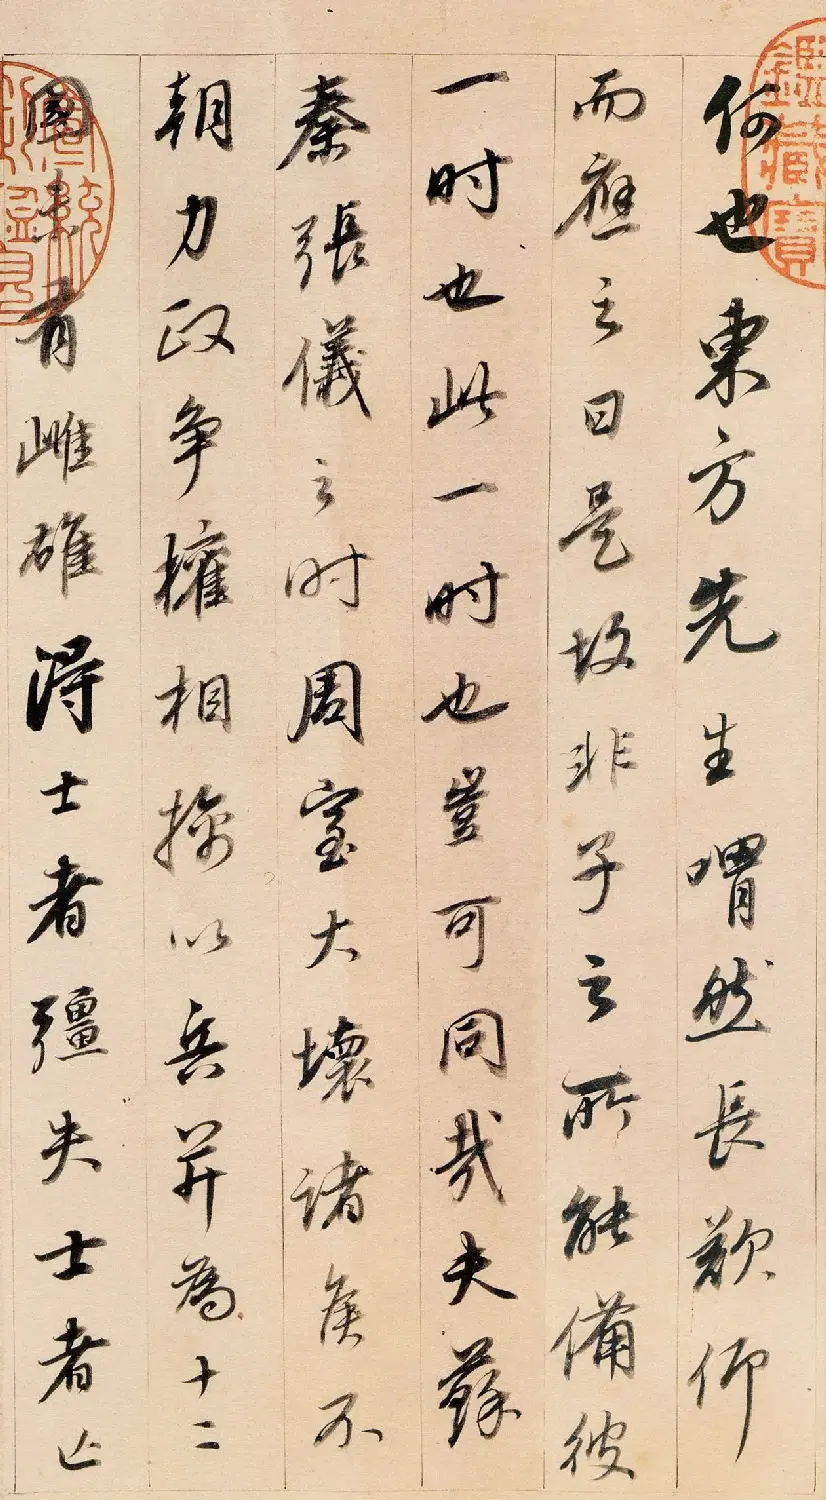 何也東方先生喟然長歎仰
而應之曰是故非子之所能備彼
一时也此一时也豈可同哉夫蘇
秦張儀之时周室大壞諸侯不
朝力政争權相擒以兵并為十二
國未有雌雄得士者彊失士者亡
鑑藏寶